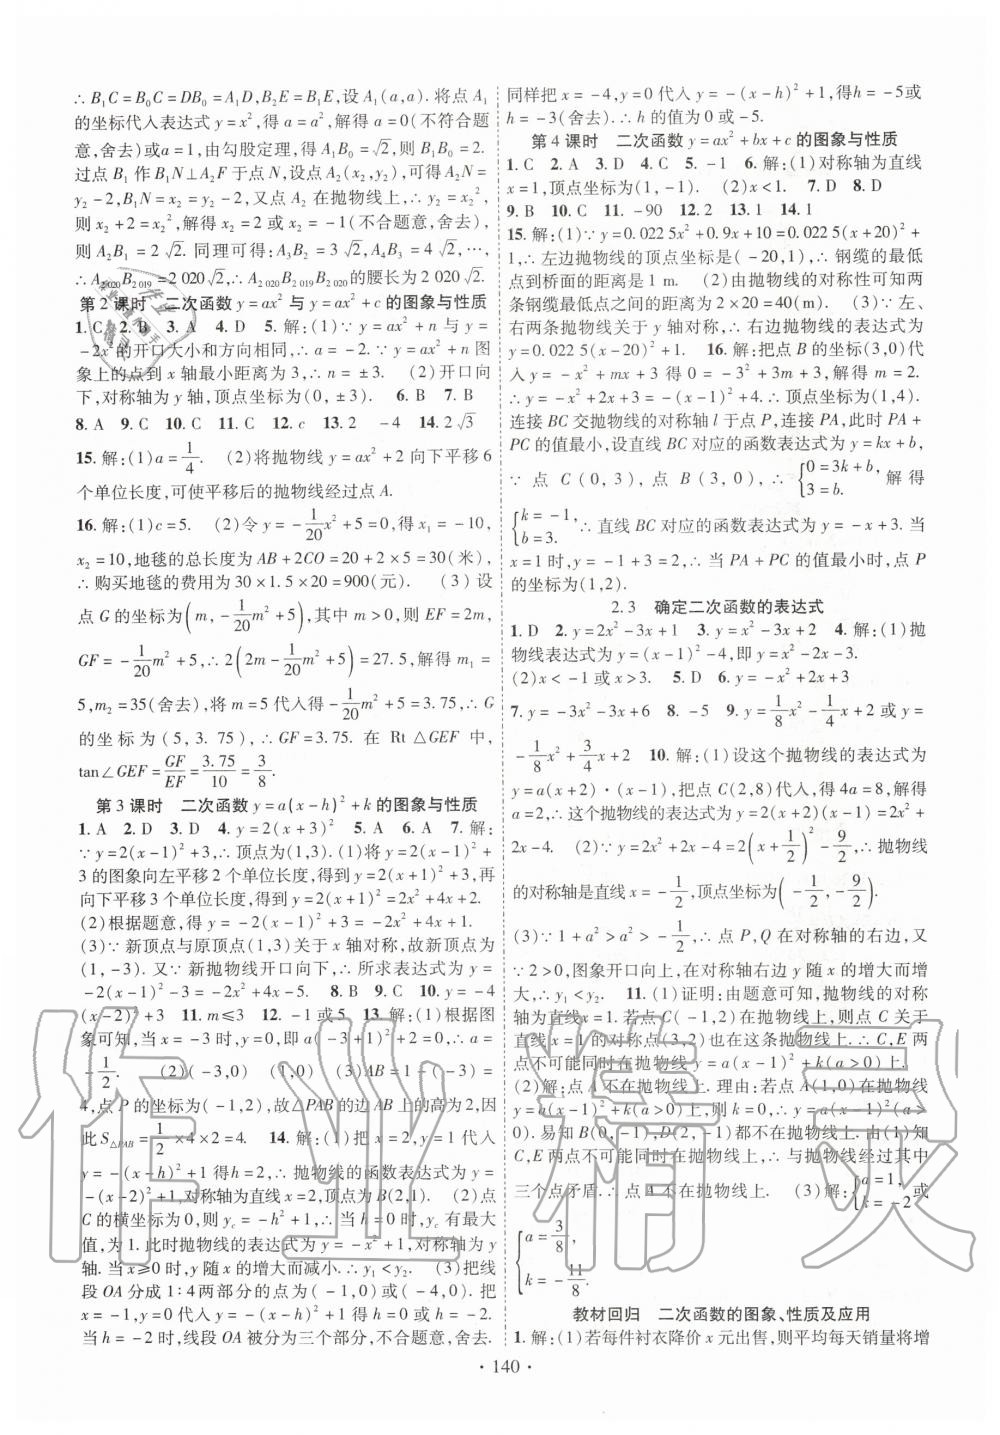 ∴B₁C=B₀C=DB₀=A₁D,B₂E=B₁E,设A₁(a,a). 将点A₁
的坐标代入表达式y=x²,得a=a²,解得a=0(不符合题
意,舍去)或a=1,由勾股定理,得A₁B₀=√2,则B₁B₀=2.
过点B₁作B₁N⊥A₂F于点N,设点A₂(x₂,y₂),可得A₂N=
y₂-2,B₁N=x₂=y₂-2,又点A₂在抛物线上,∴y₂=x₂²,
则x₂+2=x₂²,解得x₂=2或x₂=-1(不合题意,舍去),
则A₂B₁=2√2. 同理可得:A₃B₂=3√2,A₄B₃=4√2,…,
∴A₂₀₂₀B₂₀₁₉=2 020√2,∴A₂₀₂₀B₂₀₁₉B₂₀₂₀的腰长为2 020√2.
第2课时 二次函数y=ax²与y=ax²+c的图象与性质
1. C 2. B 3. A 4. D 5. 解:(1)∵y=ax²+n与y=
-2x²的开口大小和方向相同,∴a=-2. ∵y=ax²+n图
象上的点到x轴最小距离为3,∴n=±3. (2)开口向
下,对称轴为y轴,顶点坐标为(0,±3). 6. B 7. B
8. A 9. C 10. C 11. C 12. c 13. 2 -4 14. 2√3
15. 解:(1)a=1/4. (2)将抛物线y=ax²+2向下平移6
个单位长度,可使平移后的抛物线经过点A.
16. 解:(1)c=5. (2)令y=-1/20x²+5=0,得x₁=-10,
x₂=10,地毯的总长度为AB+2CO=20+2×5=30(米),
∴购买地毯的费用为30×1.5×20=900(元). (3)设
点G的坐标为(m,-1/20m²+5),其中m>0,则EF=2m,
GF=-1/20m²+5,∴2(2m-1/20m²+5)=27.5,解得m₁=
5,m₂=35(舍去),将m=5代入得-1/20m²+5=3.75,∴G
的坐标为(5,3.75),∴GF=3.75. 在Rt△GEF中,
tan∠GEF=GF/EF=3.75/10=3/8.
第3课时 二次函数y=a(x-h)²+k的图象与性质
1. A 2. D 3. D 4. y=2(x+3)² 5. A 6. A 7. 解:
∵y=2(x-1)²+3,∴顶点为(1,3). (1)将y=2(x-1)²+
3的图象向左平移2个单位长度,得到y=2(x+1)²+3,再
向下平移3个单位长度,得到y=2(x+1)²=2x²+4x+2.
(2)根据题意,得y=-2(x-1)²+3=-2x²+4x+1.
(3)∵新顶点与原顶点(1,3)关于x轴对称,故新顶点为
(1,-3). 又∵新抛物线开口向下,∴所求表达式为y=
-2(x-1)²-3=-2x²+4x-5. 8. B 9. C 10. y=-4
(x-2)²+3 11. m≤3 12. -1或5 13. 解:(1)根据图
象可知,当x=-3时,y=0,即a(-3+1)²+2=0,∴a=
-1/2. (2)(-3,0) (1,0) (3)AB=1-(-3)=
4,点P的坐标为(-1,2),故△PAB的边AB上的高为2,因
此S△PAB=1/2×4×2=4. 14. 解:(1)把x=2,y=1代入
y=-(x-h)²+1得h=2,∴抛物线的函数表达式为y=
-(x-2)²+1,对称轴为直线x=2,顶点为B(2,1). (2)点
C的横坐标为0,则y_c=-h²+1,∴当h=0时,y_c有最大
值,为1. 此时抛物线的表达式为y=-x²+1,对称轴为y
轴. 当x≥0时,y随x的增大而减小. ∴y₁<y₂. (3)把线
段OA分成1:4两部分的点为(-1,0)或(-4,0). 把
x=-1,y=0代入y=-(x-h)²+1得h=0或h=-2.
当h=-2时,线段OA被分为三个部分,不合题意,舍去.
同样把x=-4,y=0代入y=-(x-h)²+1,得h=-5或
h=-3(舍去). ∴h的值为0或-5.
第4课时 二次函数y=ax²+bx+c的图象与性质
1. C 2. A 3. D 4. C 5. -1 6. 解:(1)对称轴为直线
x=1,顶点坐标为(1,3). (2)x<1. 7. D 8. D
9. B 10. C 11. -90 12. 2 13. 1 14. 1
15. 解:(1)∵y=0.022 5x²+0.9x+10=0.022 5(x+20)²+
1,∴左边抛物线的顶点坐标是(-20,1),∴钢缆的最低
点到桥面的距离是1 m. (2)由抛物线的对称性可知两
条钢缆最低点之间的距离为2×20=40(m). (3)∵左、
右两条抛物线关于y轴对称,∴右边抛物线的表达式为
y=0.022 5(x-20)²+1. 16. 解:把点B的坐标(3,0)代
入y=-x²+mx+3得0=-3²+3m+3,解得m=2.
∴y=-x²+2x+3=-(x-1)²+4,∴顶点坐标为(1,4).
连接BC交抛物线的对称轴l于点P,连接PA,此时PA+
PC的值最小,设直线BC对应的函数表达式为y=kx+b,
∵点C(0,3),点B(3,0),∴{0=3k+b, 3=b. 解得
{k=-1, b=3. ∴直线BC对应的函数表达式为y=-x+3. 当
x=1时,y=-1+3=2,∴当PA+PC的值最小时,点P
的坐标为(1,2).
2.3 确定二次函数的表达式
1. D 2. y=2x²-3x+1 3. y=x²-3x+2 4. 解:(1)抛
物线表达式为y=(x-1)²-4,即y=x²-2x-3.
(2)x<-1或x>3. 5. D 6. y=-x²+2x+3
7. y=-3x²-3x+6 8. -5 9. y=1/8x²-1/4x+2或y=
-1/8x²+3/4x+2 10. 解:(1)设这个抛物线的表达式为
y=a(x+2)·(x-1),把点C(2,8)代入,得4a=8,解得
a=2,∴这个抛物线的表达式为y=2(x+2)(x-1)=2x²+
2x-4. (2)∵y=2x²+2x-4=2(x+1/2)²-9/2,∴抛物线
的对称轴是直线x=-1/2,顶点坐标为(-1/2,-9/2).
(3)∵1+a²>a²>-1/2,∴点P,Q在对称轴的右边,又
∵2>0,图象开口向上,在对称轴右边y随x的增大而增
大,∴y₁<y₂. 11. (1)证明:由题意可知,抛物线的对称
轴为直线x=1. 若点C(-1,2)在抛物线上,则点C关于
直线x=1的对称点(3,2)也在这条抛物线上. ∴C,E两
点不可能同时在抛物线y=a(x-1)²+k(a>0)上.
(2)解:点A不在抛物线上. 理由:若点A(1,0)在抛物线
y=a(x-1)²+k(a>0)上,则k=0. ∴y=a(x-1)²(a>
0). 易知B(0,-1),D(2,-1)都不在抛物线上. 由(1)知,
C,E两点不可能同时在抛物线上,∴与抛物线经过其中
三个点矛盾. ∴点A不在抛物线上. (3)解:{a=1, k=-2或
{a=3/8, k=-11/8.
教材回归 二次函数的图象、性质及应用
1. 解:(1)若每件衬衣降价x元出售,则平均每天销量将增
· 140 ·
作业精灵